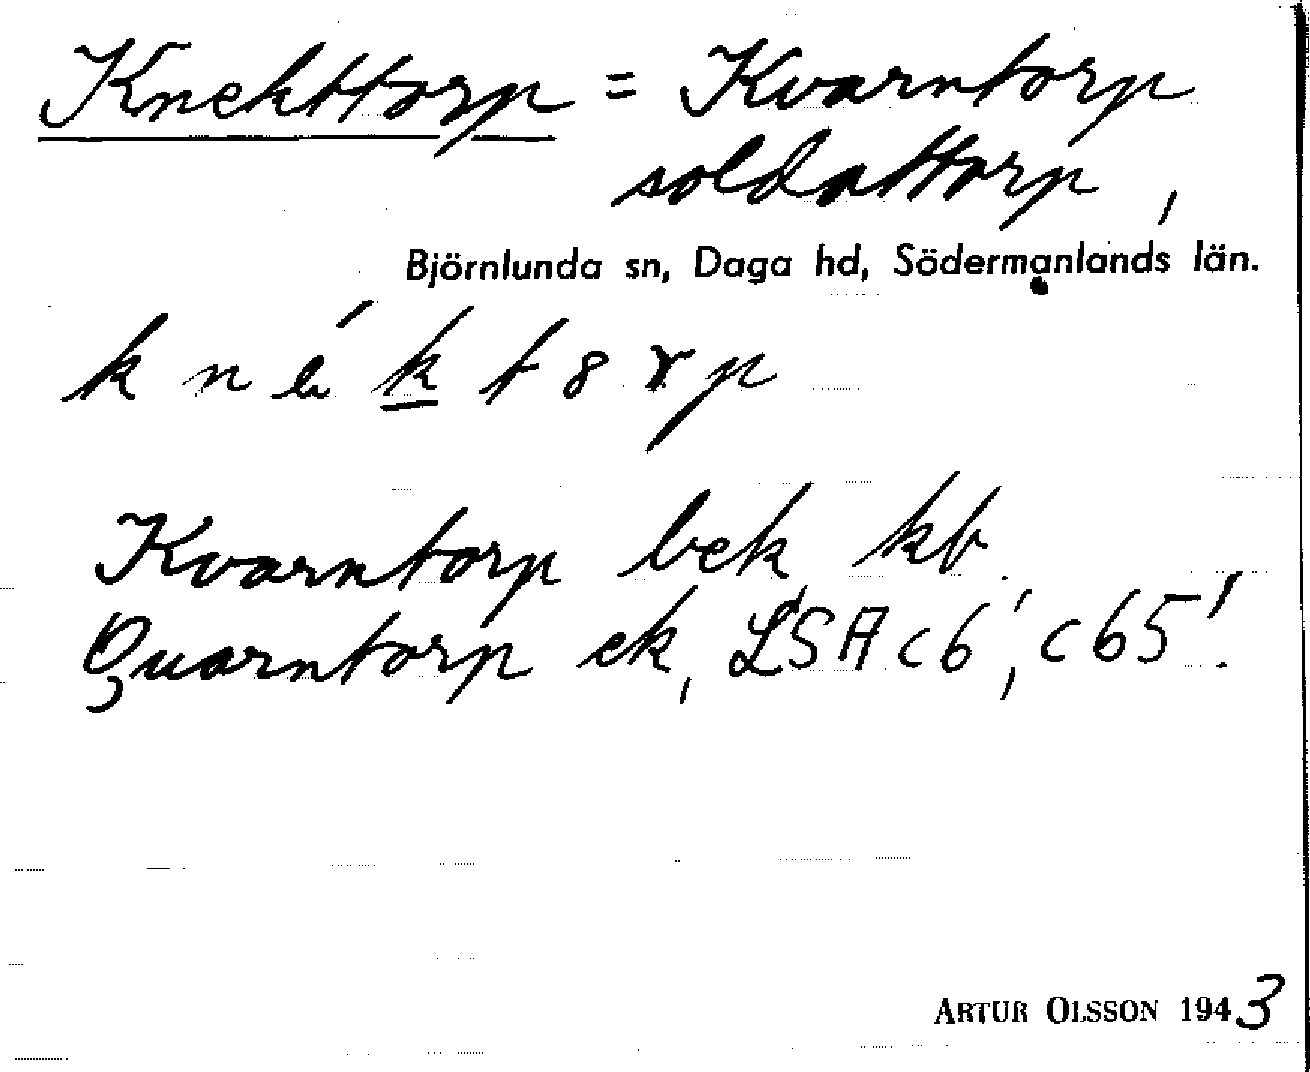 Knekttorp = Kvarntorp
soldattorp,
Björnlunda sn, Daga hd, Södermanlands län.
k n ä́ k t 8 r p
Kvarntorp bek kb.
Quarntorp ek, LSA c6', c65'.
ARTUR OLSSON 1943